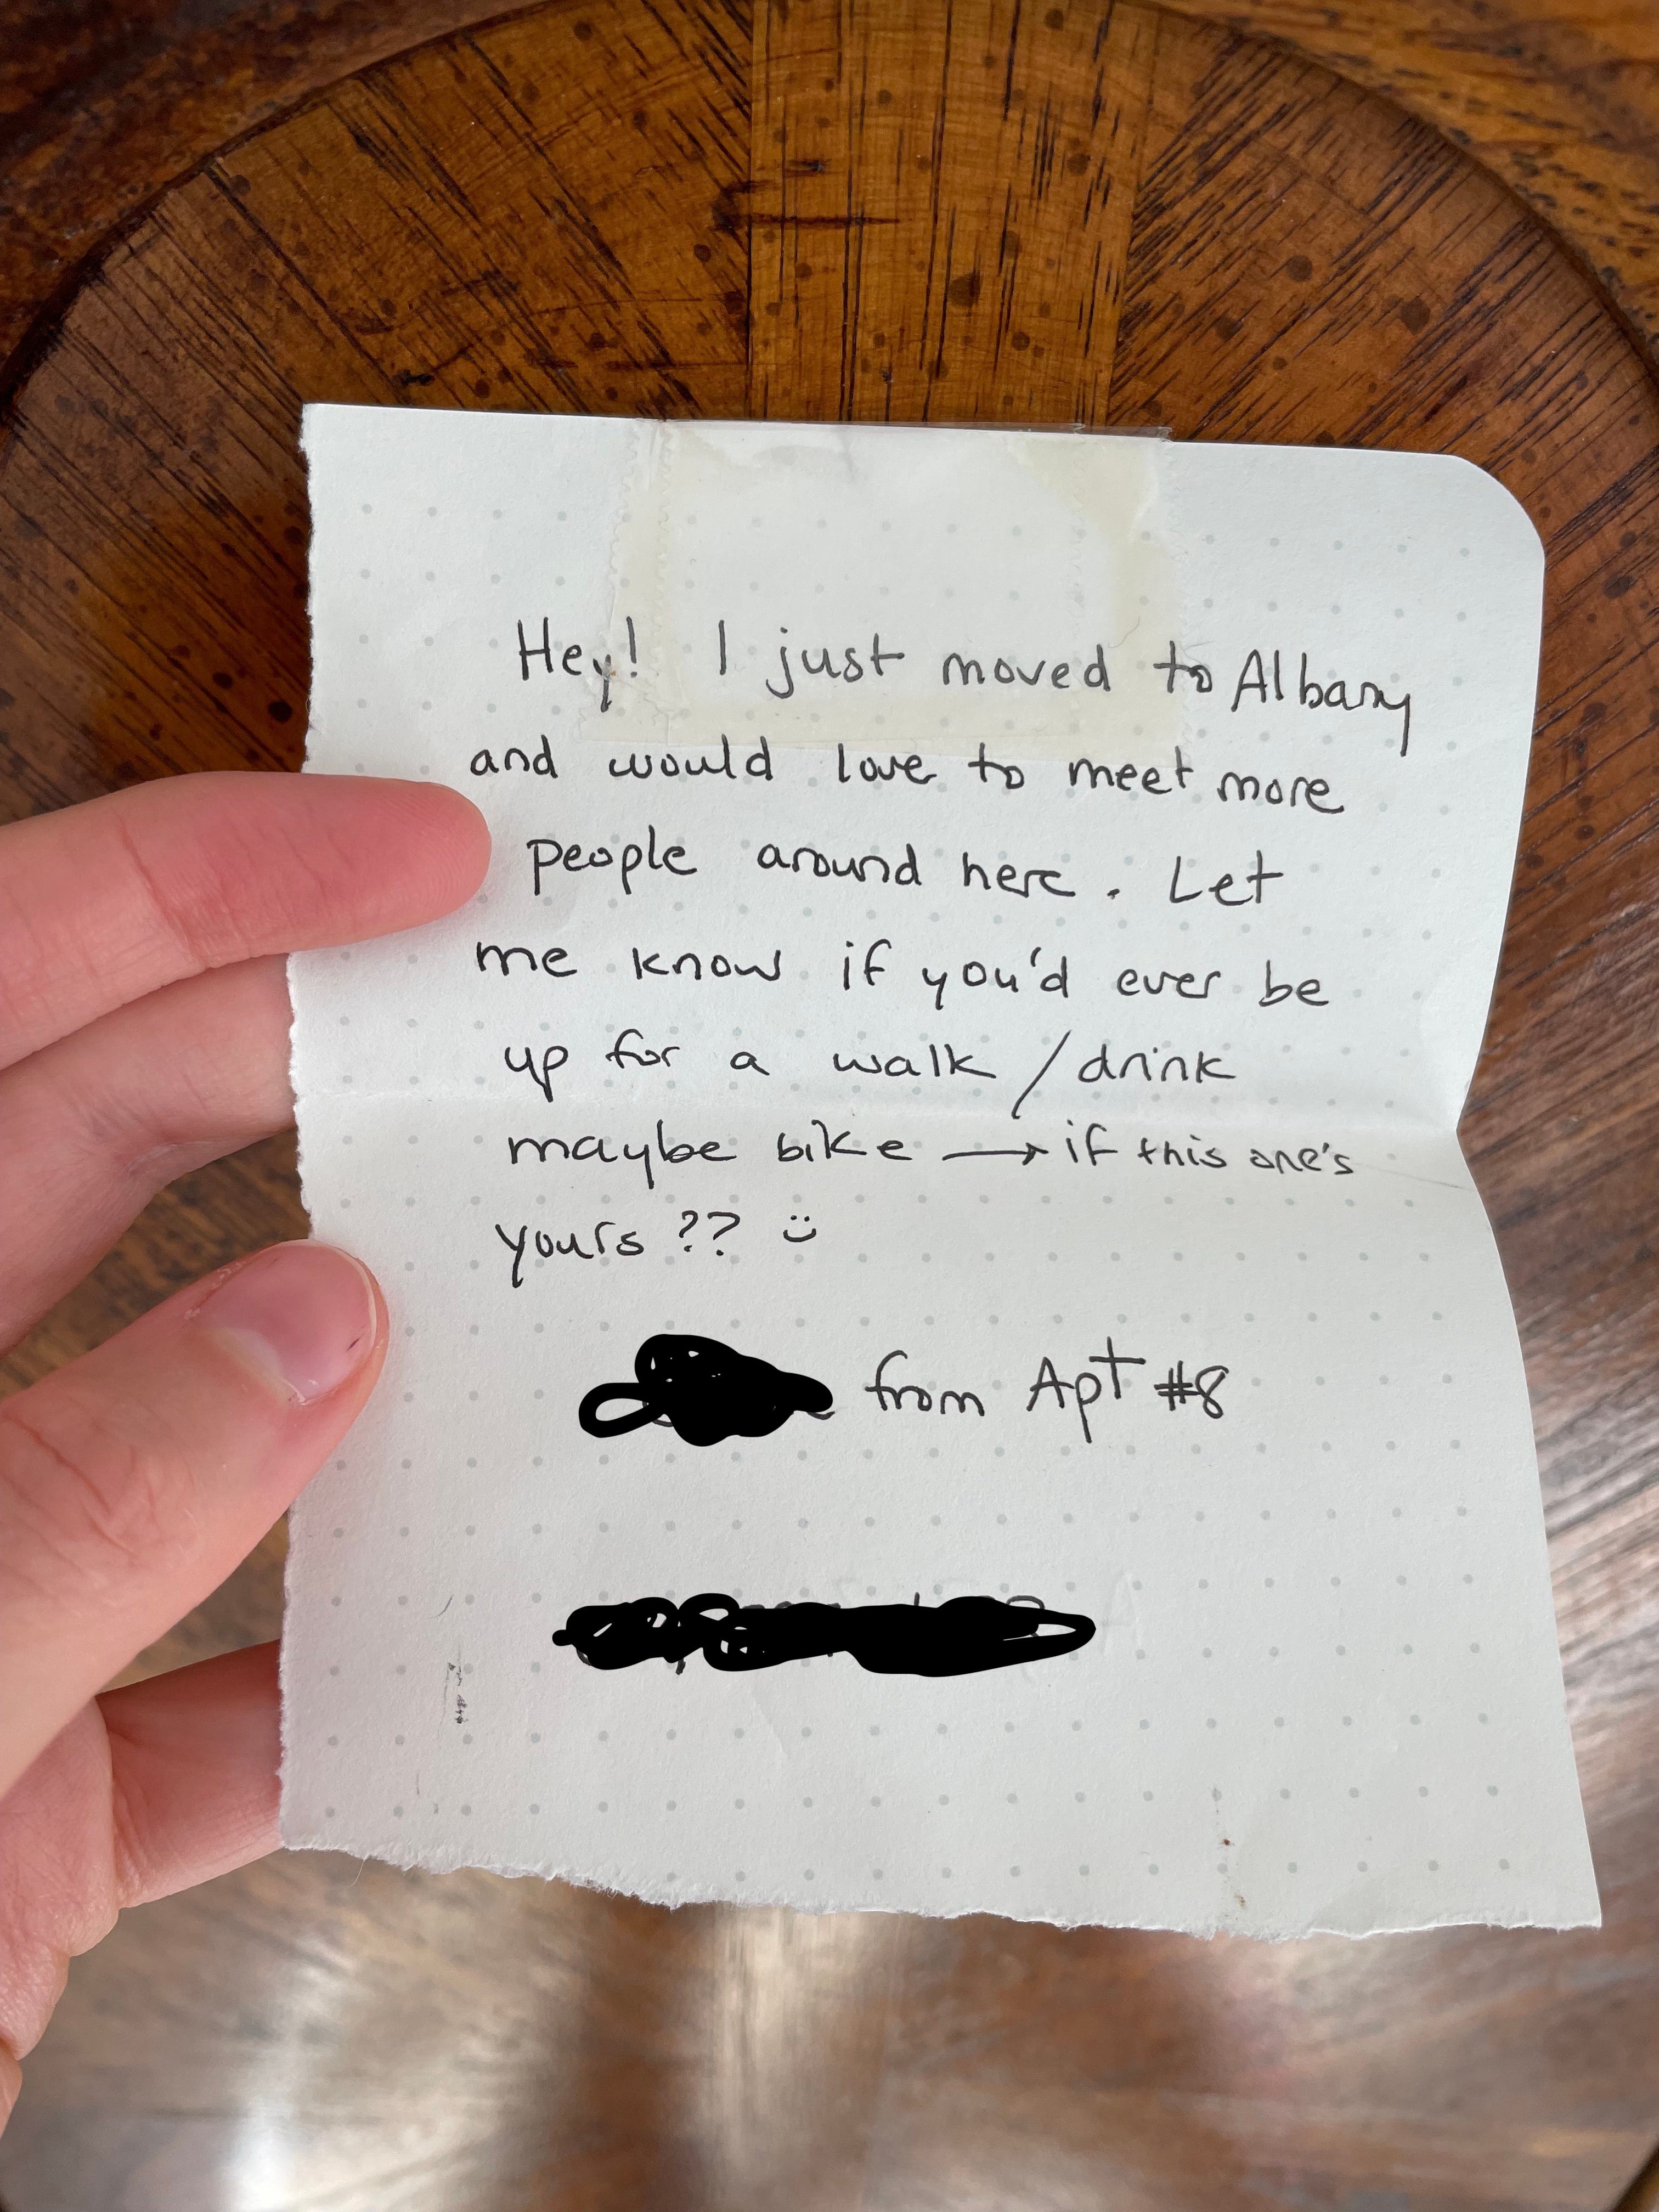 Hey! I just moved to Albany
and would love to meet more
people around here. Let
me know if you'd ever be
up for a walk / drink
maybe bike → if this one's
yours ?? :)
from Apt #8